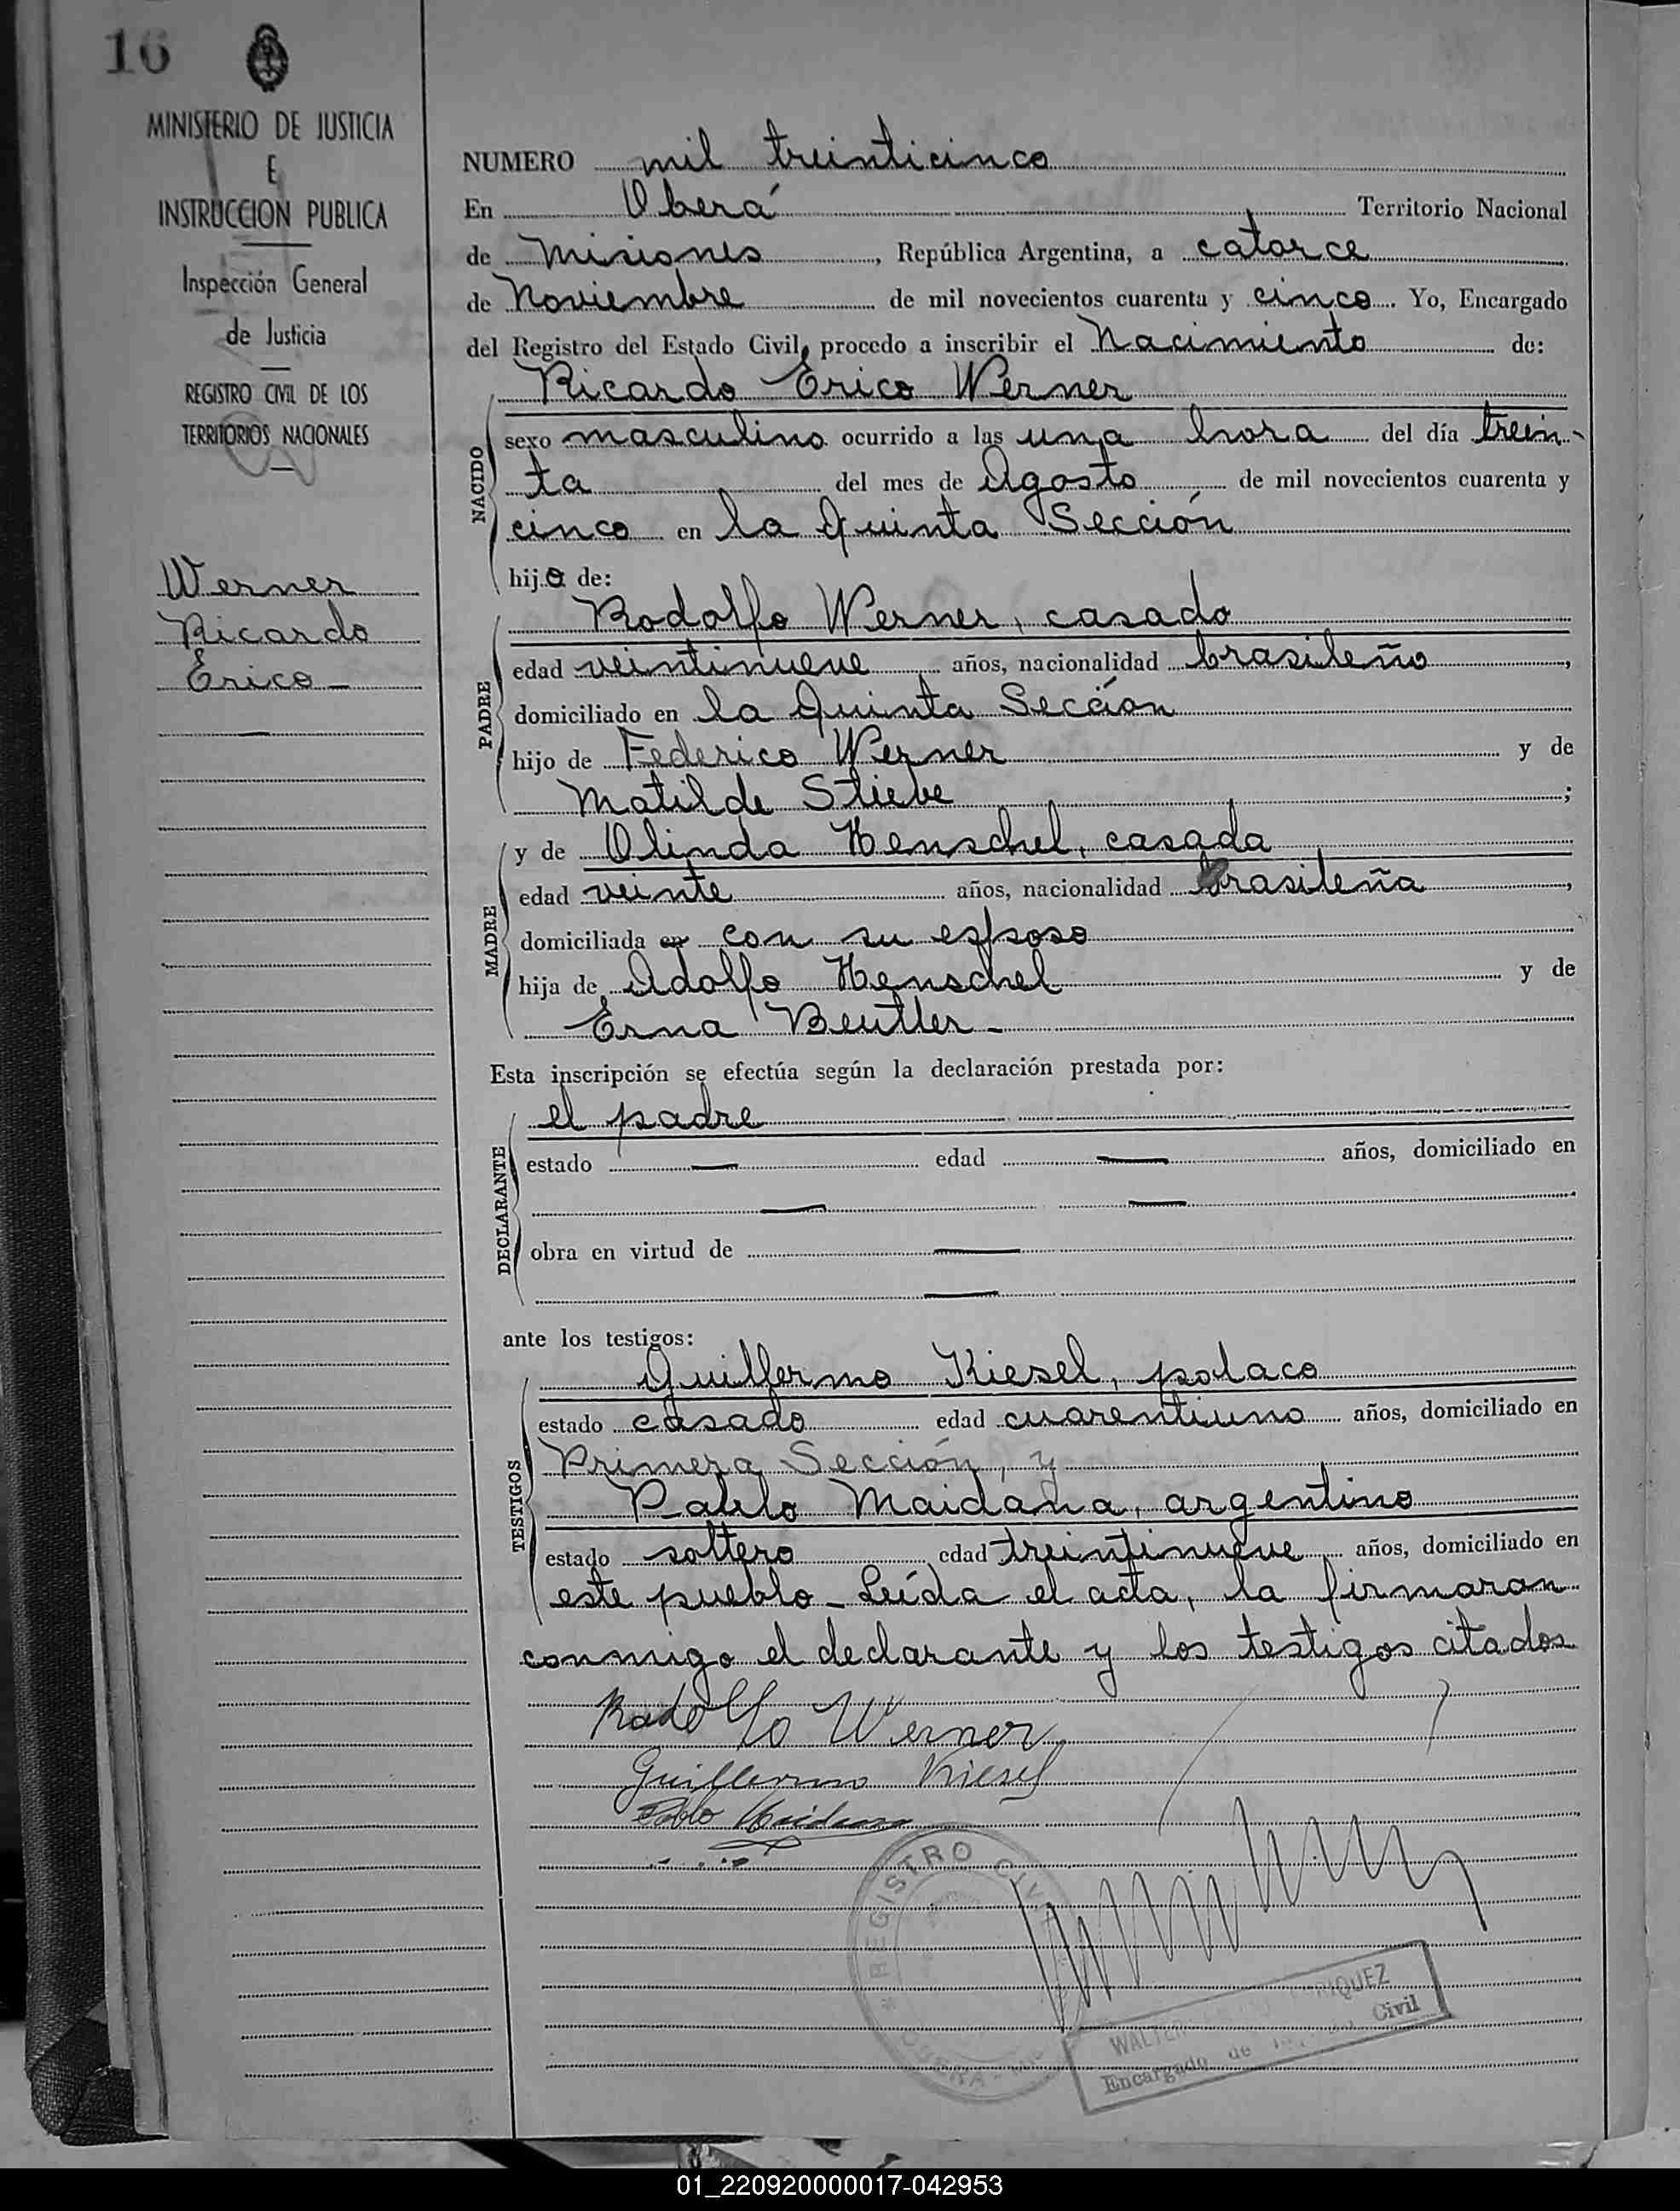 16
MINISTERIO DE JUSTICIA
E
INSTRUCCION PUBLICA
Inspección General
de Justicia
REGISTRO CIVIL DE LOS
TERRITORIOS NACIONALES
Werner
Ricardo
Erico
NUMERO mil treinticinco
En Oberá Territorio Nacional
de Misiones, República Argentina, a catorce
de Noviembre de mil novecientos cuarenta y cinco. Yo, Encargado
del Registro del Estado Civil, procedo a inscribir el Nacimiento de:
NACIDO
Ricardo Erico Werner
sexo masculino ocurrido a las una hora del día trein-
ta del mes de Agosto de mil novecientos cuarenta y
cinco en la Quinta Sección
hijo de:
PADRE
Rodolfo Werner, casado
edad veintinueve años, nacionalidad brasileño,
domiciliado en la Quinta Sección
hijo de Federico Werner y de
Matilde Stiebe;
MADRE
y de Olinda Henschel, casada
edad veinte años, nacionalidad brasileña,
domiciliada en con su esposo
hija de Adolfo Henschel y de
Erna Beutler-
Esta inscripción se efectúa según la declaración prestada por:
DECLARANTE
el padre
estado — edad — años, domiciliado en
— —
obra en virtud de —
—
ante los testigos:
TESTIGOS
Guillermo Kiesel, polaco
estado casado edad cuarentiuno años, domiciliado en
Primera Sección, y
Pablo Maidana, argentino
estado soltero edad treintinueve años, domiciliado en
este pueblo - Leída el acta, la firmaron
conmigo el declarante y los testigos citados
Rodolfo Werner
Guillermo Kiesel
Pablo Maidana
REGISTRO CIVIL
WALTER
Encargado de Civil
01_220920000017-042953